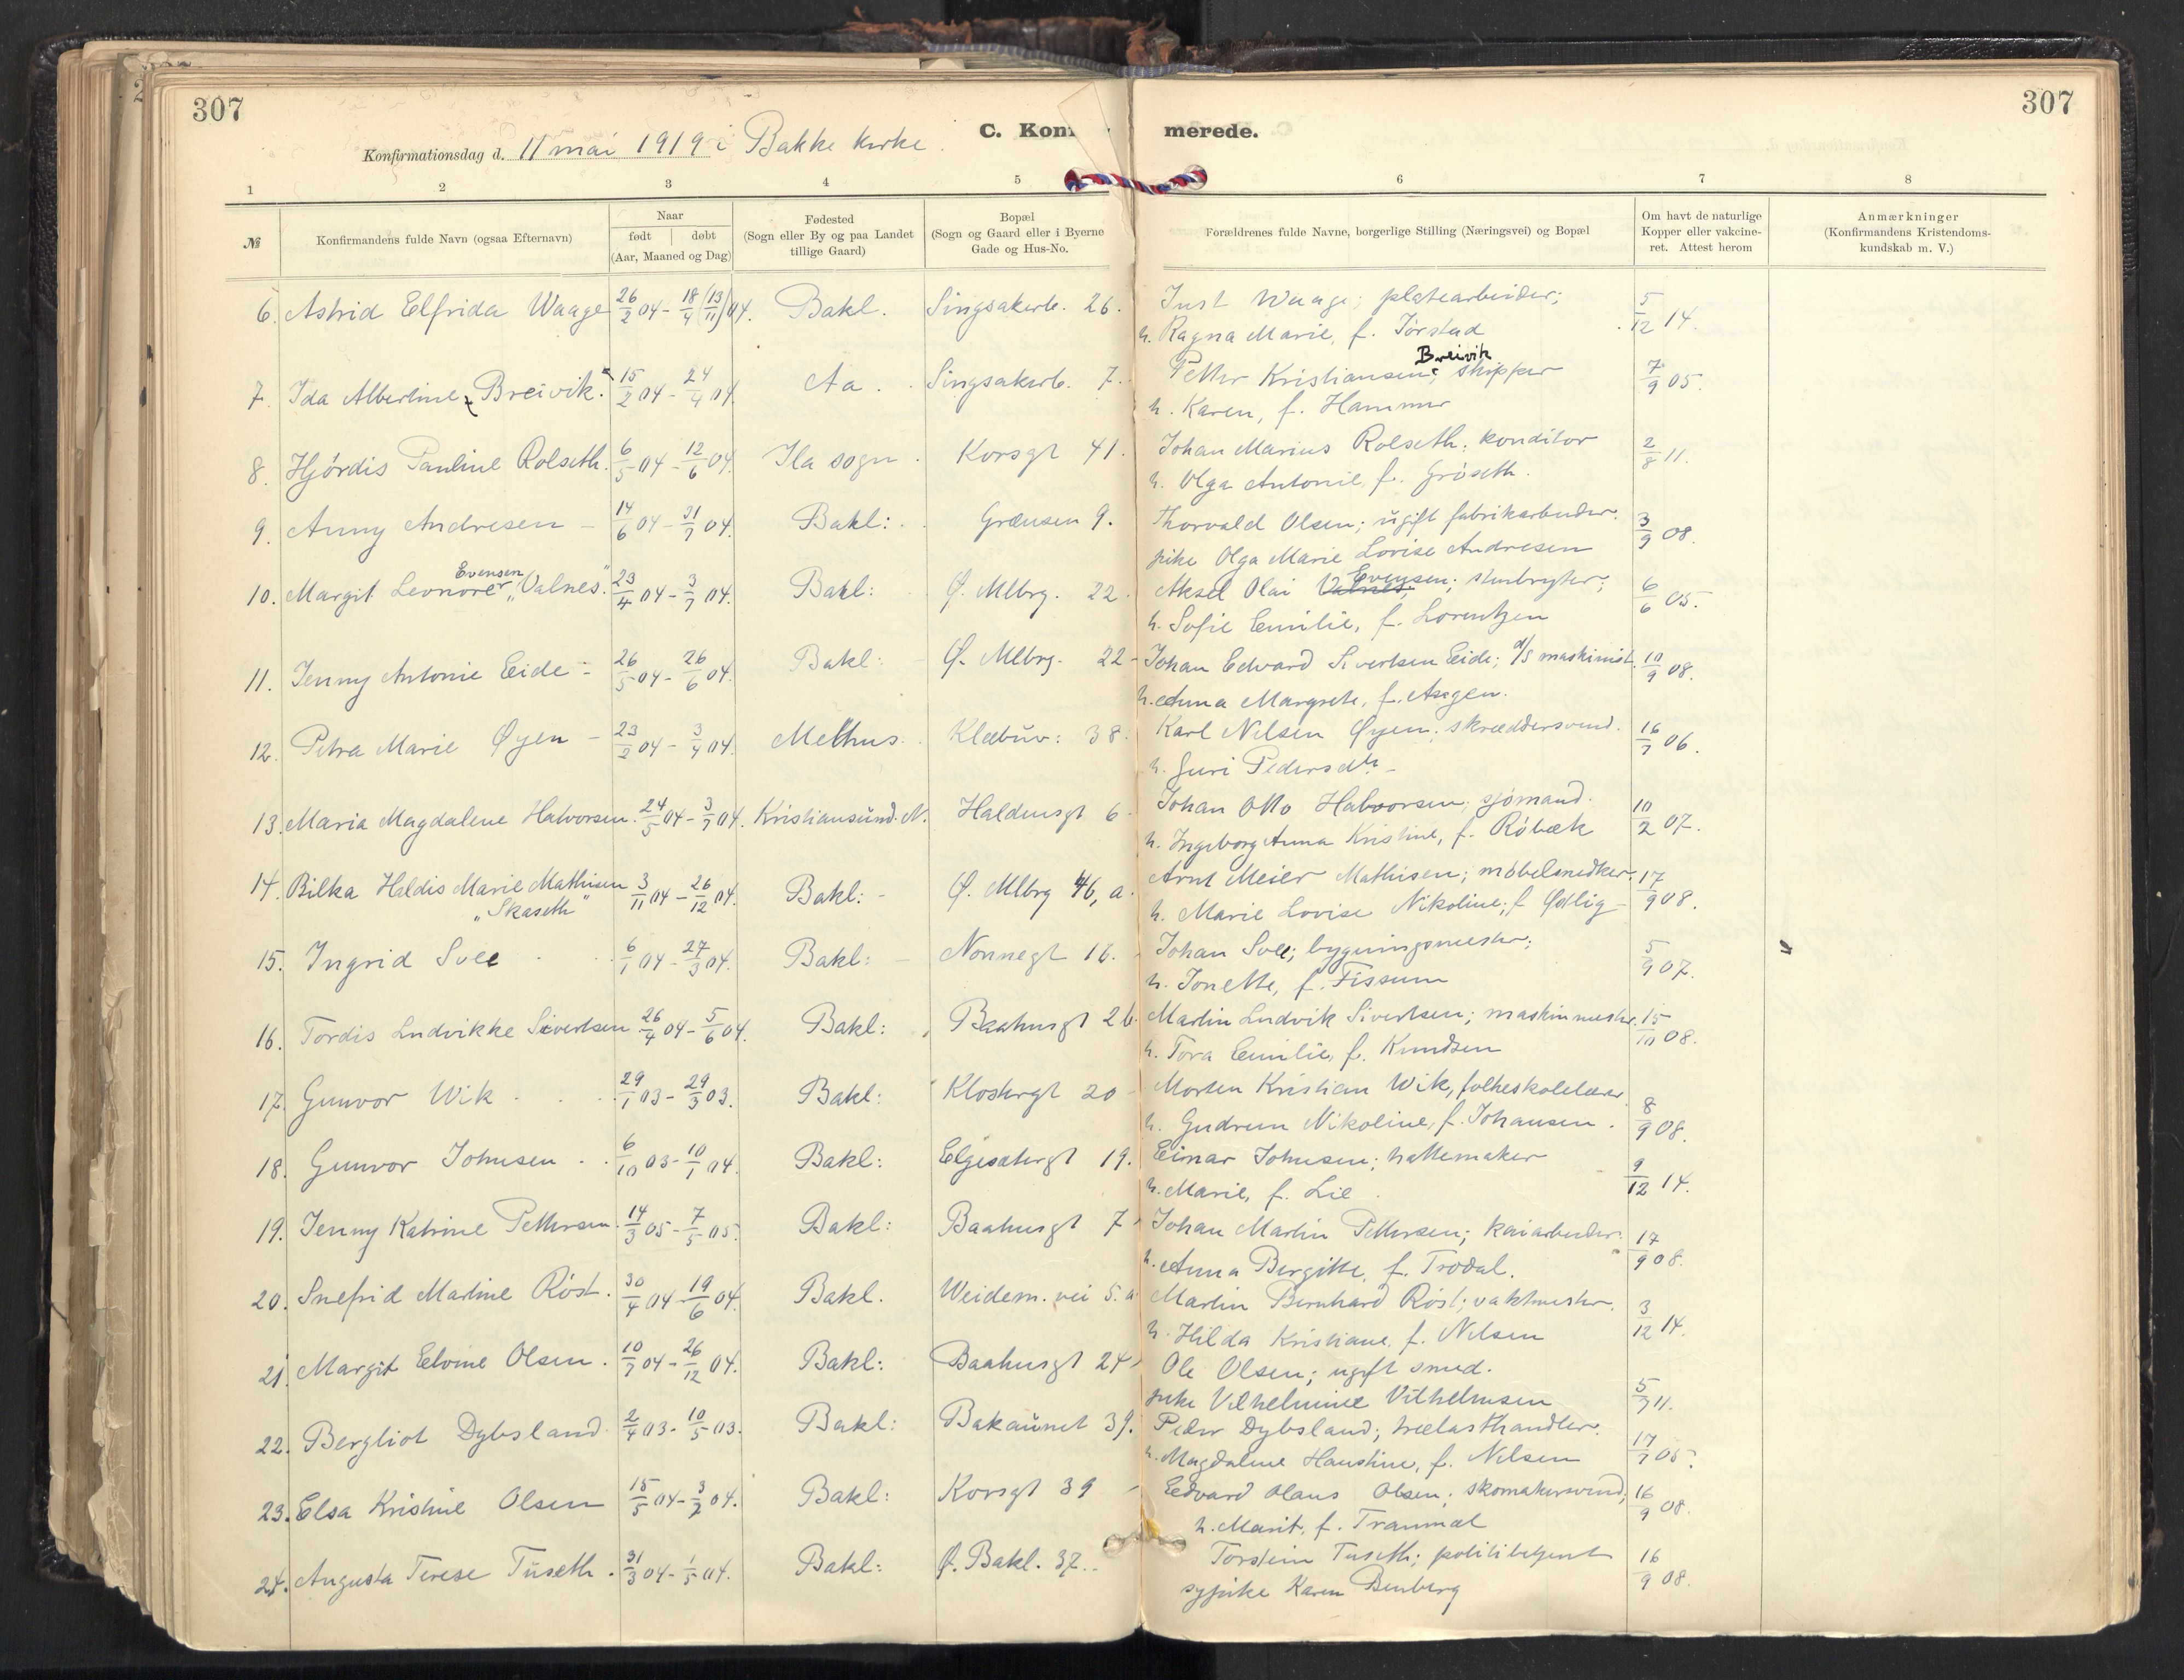 307
307
C. Konf
merede.
Konfirmationsdag d. 11 mai 1919 i Bakke kirke.
1 2 3 4 5 6 7 8
№
Konfirmandens fulde Navn (ogsaa Efternavn)
Naar
født døbt
(Aar, Maaned og Dag)
Fødested
(Sogn eller By og paa Landet
tillige Gaard)
Bopæl
(Sogn og Gaard eller i Byerne
Gade og Hus-No.
Forældrenes fulde Navne, borgerlige Stilling (Næringsvei) og Bopæl
Om havt de naturlige
Kopper eller vakcine-
ret. Attest herom
Anmærkninger
(Konfirmandens Kristendoms-
kundskab m. V.)
6. Astrid Elfrida Waage 26/2 04 - 18/9 (13/11) 04. Bakl. Singsakerb. 26. Just Waage; platearbeider; 5/12 14.
h. Ragna Marie, f. Jörstad
7. Ida Alberline Breivik. 15/2 04 - 24/4 04. Aa. Singsakerb. 7. Petter Kristiansen Breivik; skipper 7/9 05.
h. Karen, f. Hammer
8. Hjördis Pauline Rolseth. 6/5 04 - 12/6 04. Ila sogn. Korsgt 41. Johan Marius Rolseth; konditor 2/8 11.
h. Olga Antonie, f. Gröseth.
9. Anny Andresen - 14/6 04 - 31/7 04. Bakl: Grænsen 9. Thorvald Olsen; ugift fabrikarbeider. 3/9 08.
pike Olga Marie Lovise Andresen
10. Margit Leonore Evensen "Valnes". 23/4 04 - 3/7 04. Bakl: Ø. Mllbrg. 22. Aksel Olai Valnes Evensen; stenbryter; 6/6 05.
h. Sofie Emilie, f. Lorentzen
11. Jenny Antonie Eide - 26/5 04 - 26/6 04. Bakl: Ø. Mllbrg. 22 - Johan Edvard Sivertsen Eide; d/s maskinist. 10/9 08.
h. Anna Margrete, f. Aagen.
12. Petra Marie Øyen - 23/2 04 - 3/4 04. Melhus. Klæbuv: 38. Karl Nilsen Øyen; skræddersvend. 16/7 06.
h. Guri Pedersdtr -
13. Maria Magdalene Halvorsen. 24/5 04 - 3/7 04. Kristiansund. N. Haldensgt 6 - Johan Otto Halvorsen; sjömand. 10/2 07.
h. Ingeborg Anna Kristine, f. Röbæk
14. Bilka Haldis Marie Mathisen 3/11 04 - 26/12 04. Bakl: - Ø. Mllbrg 46, a. Arnt Meier Mathisen; möbelsnedker. 17/9 08.
"Skaseth"
h. Marie Lovise Nikoline; f. Ødlig -
15. Ingrid Svee 6/1 04 - 27/3 04. Bakl: - Nonnegt 16. Johan Svee; bygningsmester; 5/9 07.
h. Jonette, f. Fissum
16. Tordis Ludvikke Sivertsen 26/4 04 - 5/6 04. Bakl: Baahusgt 26. Martin Ludvik Sivertsen; maskinmester. 15/10 08.
h. Tora Emilie, f. Knudsen
17. Gunvor Wik 29/1 03 - 29/3 03. Bakl: Klostergt 20 - Morten Kristian Wik, folkeskolelærer. 8/9 08.
h. Gudrun Nikoline, f. Johansen.
18. Gunvor Johnsen 6/10 03 - 10/1 04. Bakl: Elgesetergt 19. Einar Johnsen; hattemaker 9/12 14.
h. Marie, f. Lie.
19. Jenny Katrine Pettersen. 14/3 05 - 7/5 05. Bakl: Baahusgt 7 Johan Martin Pettersen; kaiarbeider. 17/9 08.
h. Anna Bergitte, f. Trodal.
20. Snefrid Martine Röst. 30/4 04 - 19/6 04. Bakl. Weidem. vei 5.a Martin Bernhard Röst; vaktmester. 3/12 14.
h. Hilda Kristiane, f. Nilsen
21. Margit Elvine Olsen. 10/7 04 - 26/12 04. Bakl: Baahusgt 24 Ole Olsen; ugift smed. 5/7 11.
pike Vilhelmine Vilhelmsen
22. Bergliot Dybsland 2/4 03 - 10/5 03. Bakl: Bakaunet 39. Peder Dybsland; trælasthandler. 17/7 05.
h. Magdalene Hanstine, f. Nilsen
23. Elsa Kristine Olsen 15/5 04 - 3/7 04. Bakl: Korsgt 39 - Edvard Olaus Olsen; skomakersvend; 16/9 08.
h. Marit, f. Tranmæl
24. Augusta Terese Tuseth. 31/3 04 - 1/5 04. Bakl: Ø. Bakl. 37. Torstein Tuseth; politibetjent 16/9 08.
sypike Karen Benberg